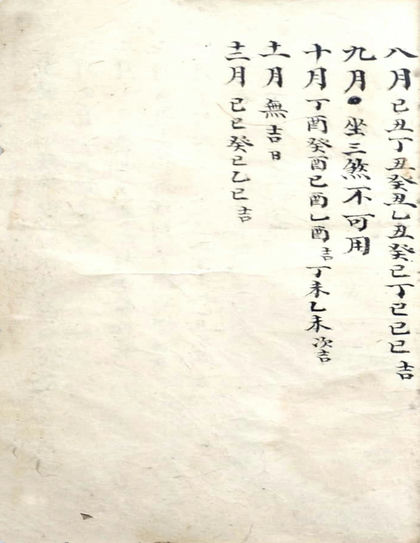 八月己丑丁丑癸丑乙丑癸巳丁巳己巳吉
九月坐三煞不可用
十月丁酉癸酉己酉乙酉吉丁未乙未次吉
十一月無吉日
十二月己巳癸巳乙巳吉